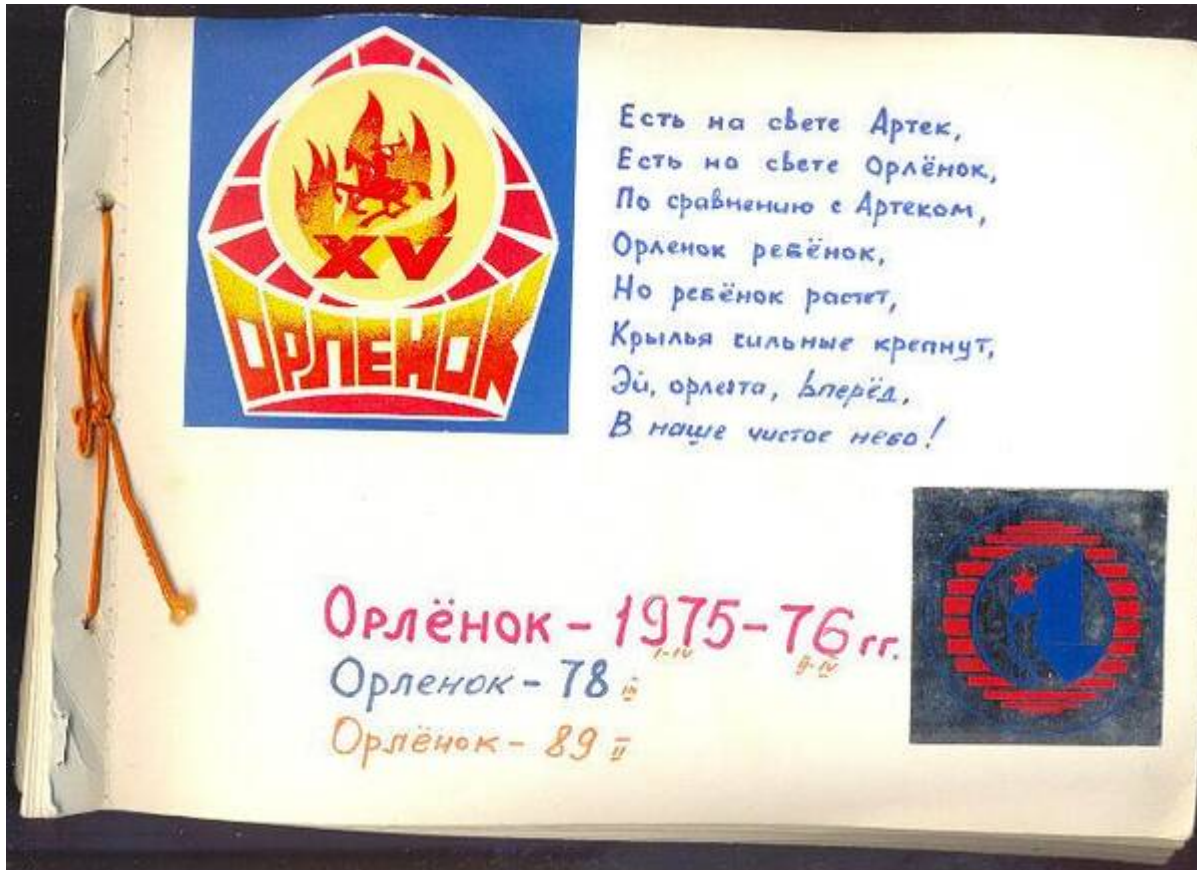 XV
ОРЛЕНОК
Есть на свете Артек,
Есть на свете Орлёнок,
По сравнению с Артеком,
Орленок ребёнок,
Но ребёнок растет,
Крылья сильные крепнут,
Эй, орлята, вперёд,
В наше чистое небо!
Орлёнок - 1975-76 гг.
I-IV II-IV
Орленок - 78 III
Орлёнок - 89 II